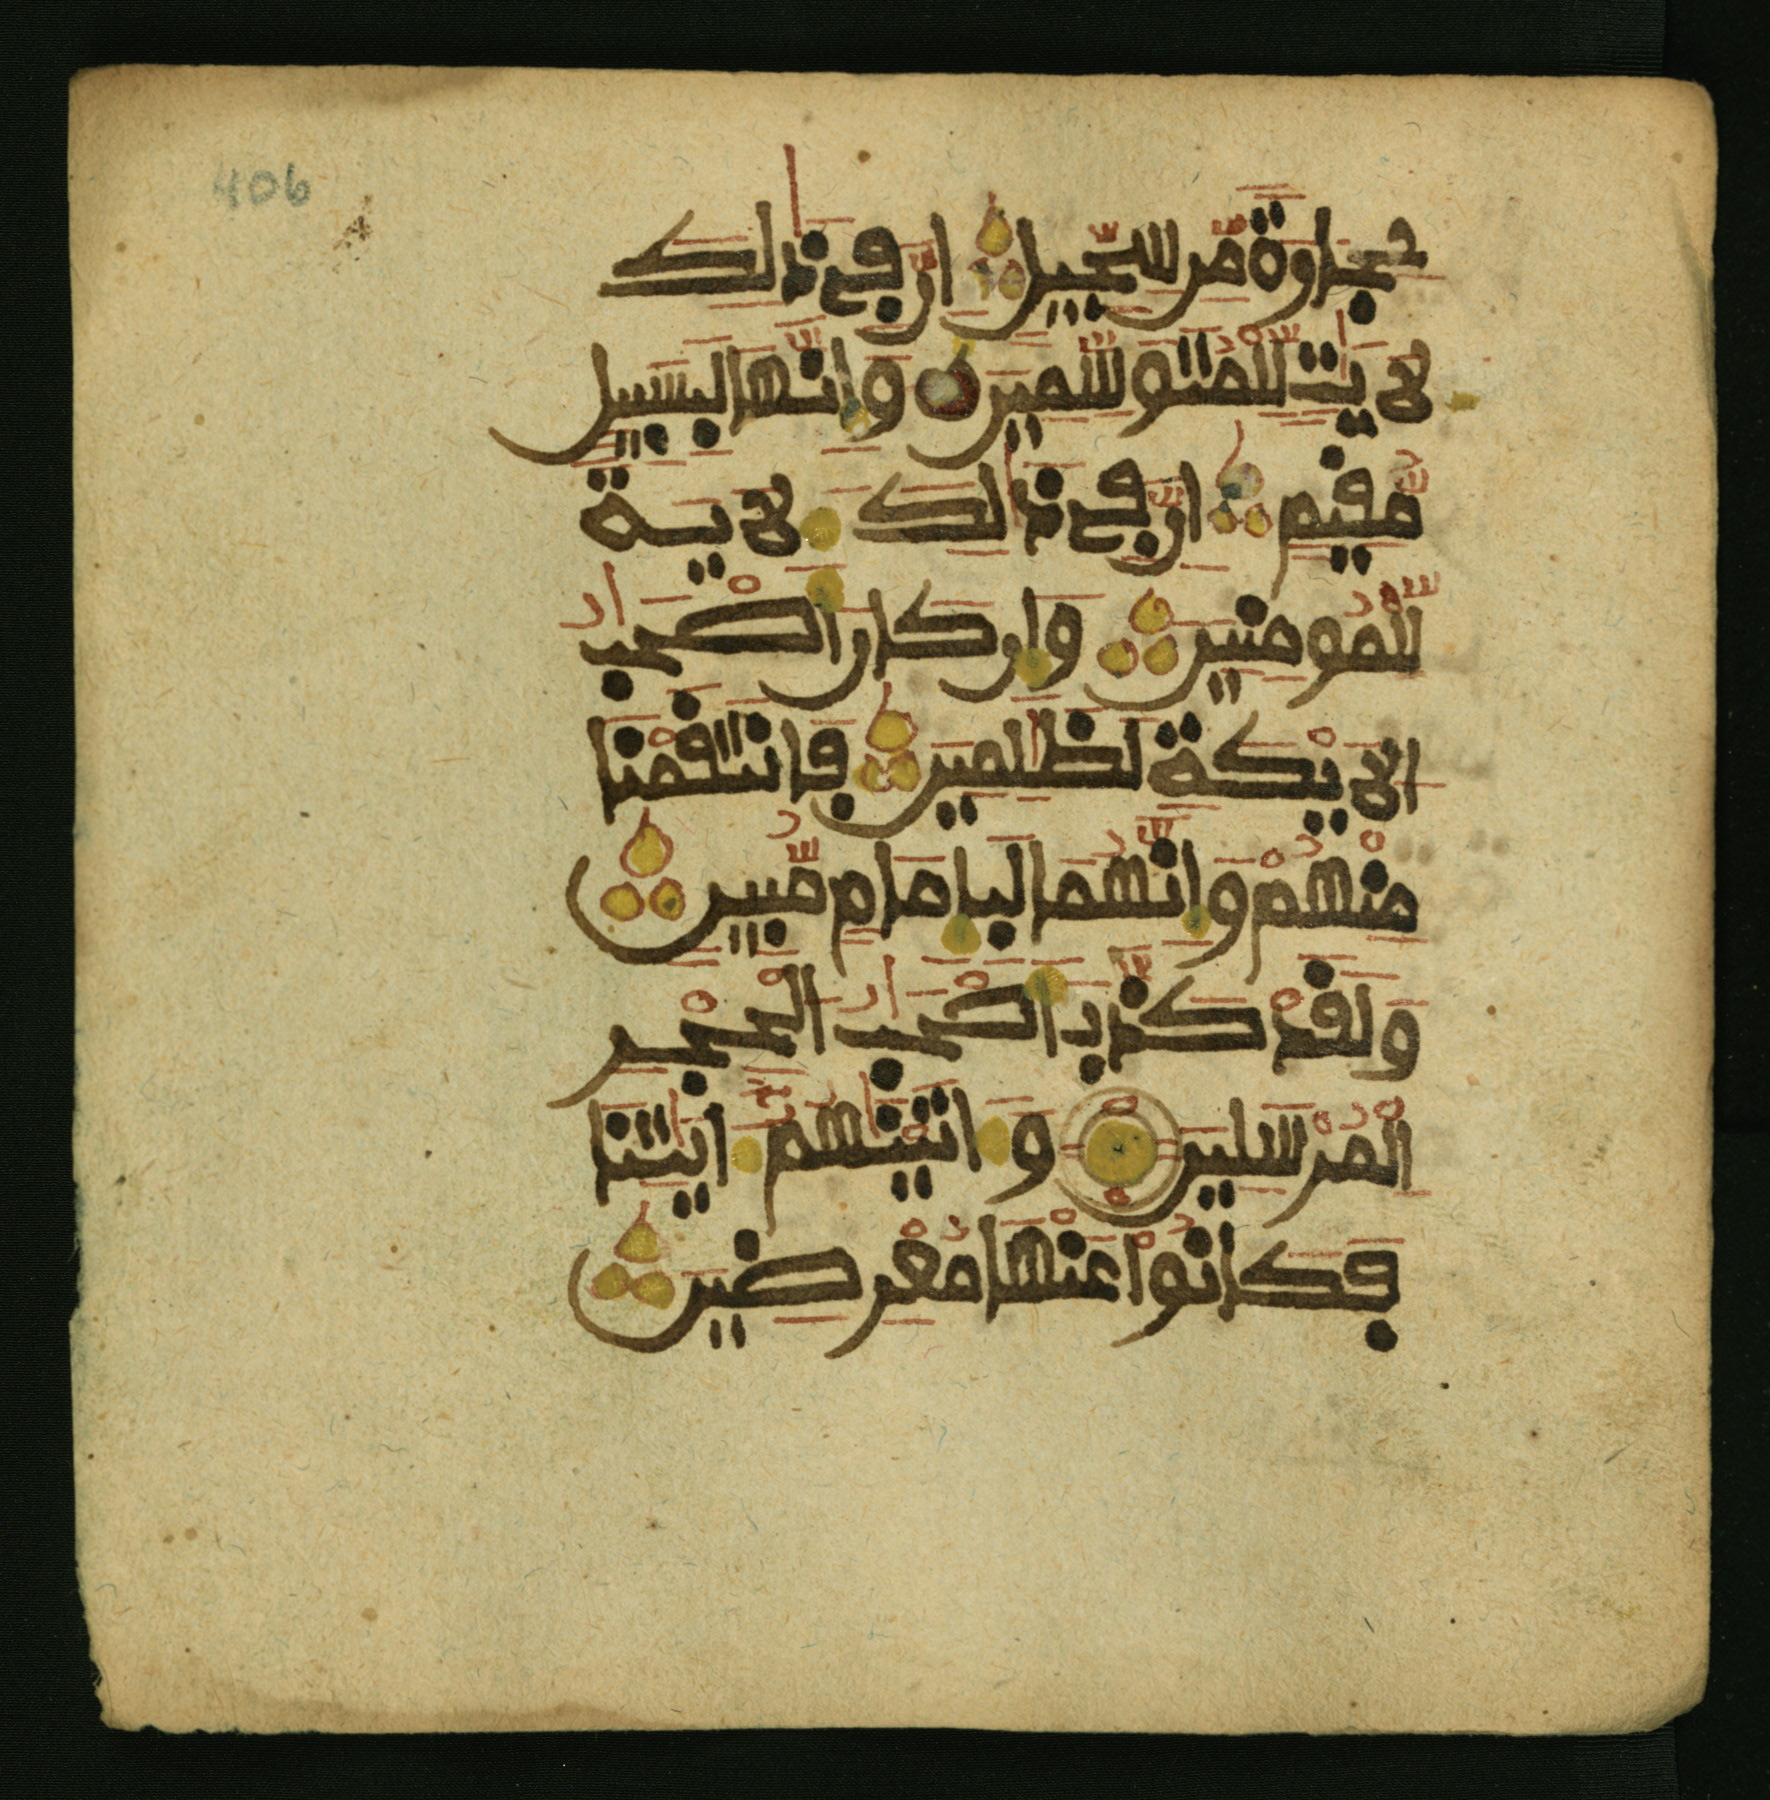 406
حجارة من سجيل ان في ذالك
لأيت للمتوسمين وانها لبسبيل
مقيم ان في ذالك لأية
للمومنين وان كان اصحب
الأيكة لظلمين فانتقمنا
منهم وانهما لبامام مبين
ولقد كذب اصحب الحجر
المرسلين واتينهم ايتنا
فكانوا عنها معرضين